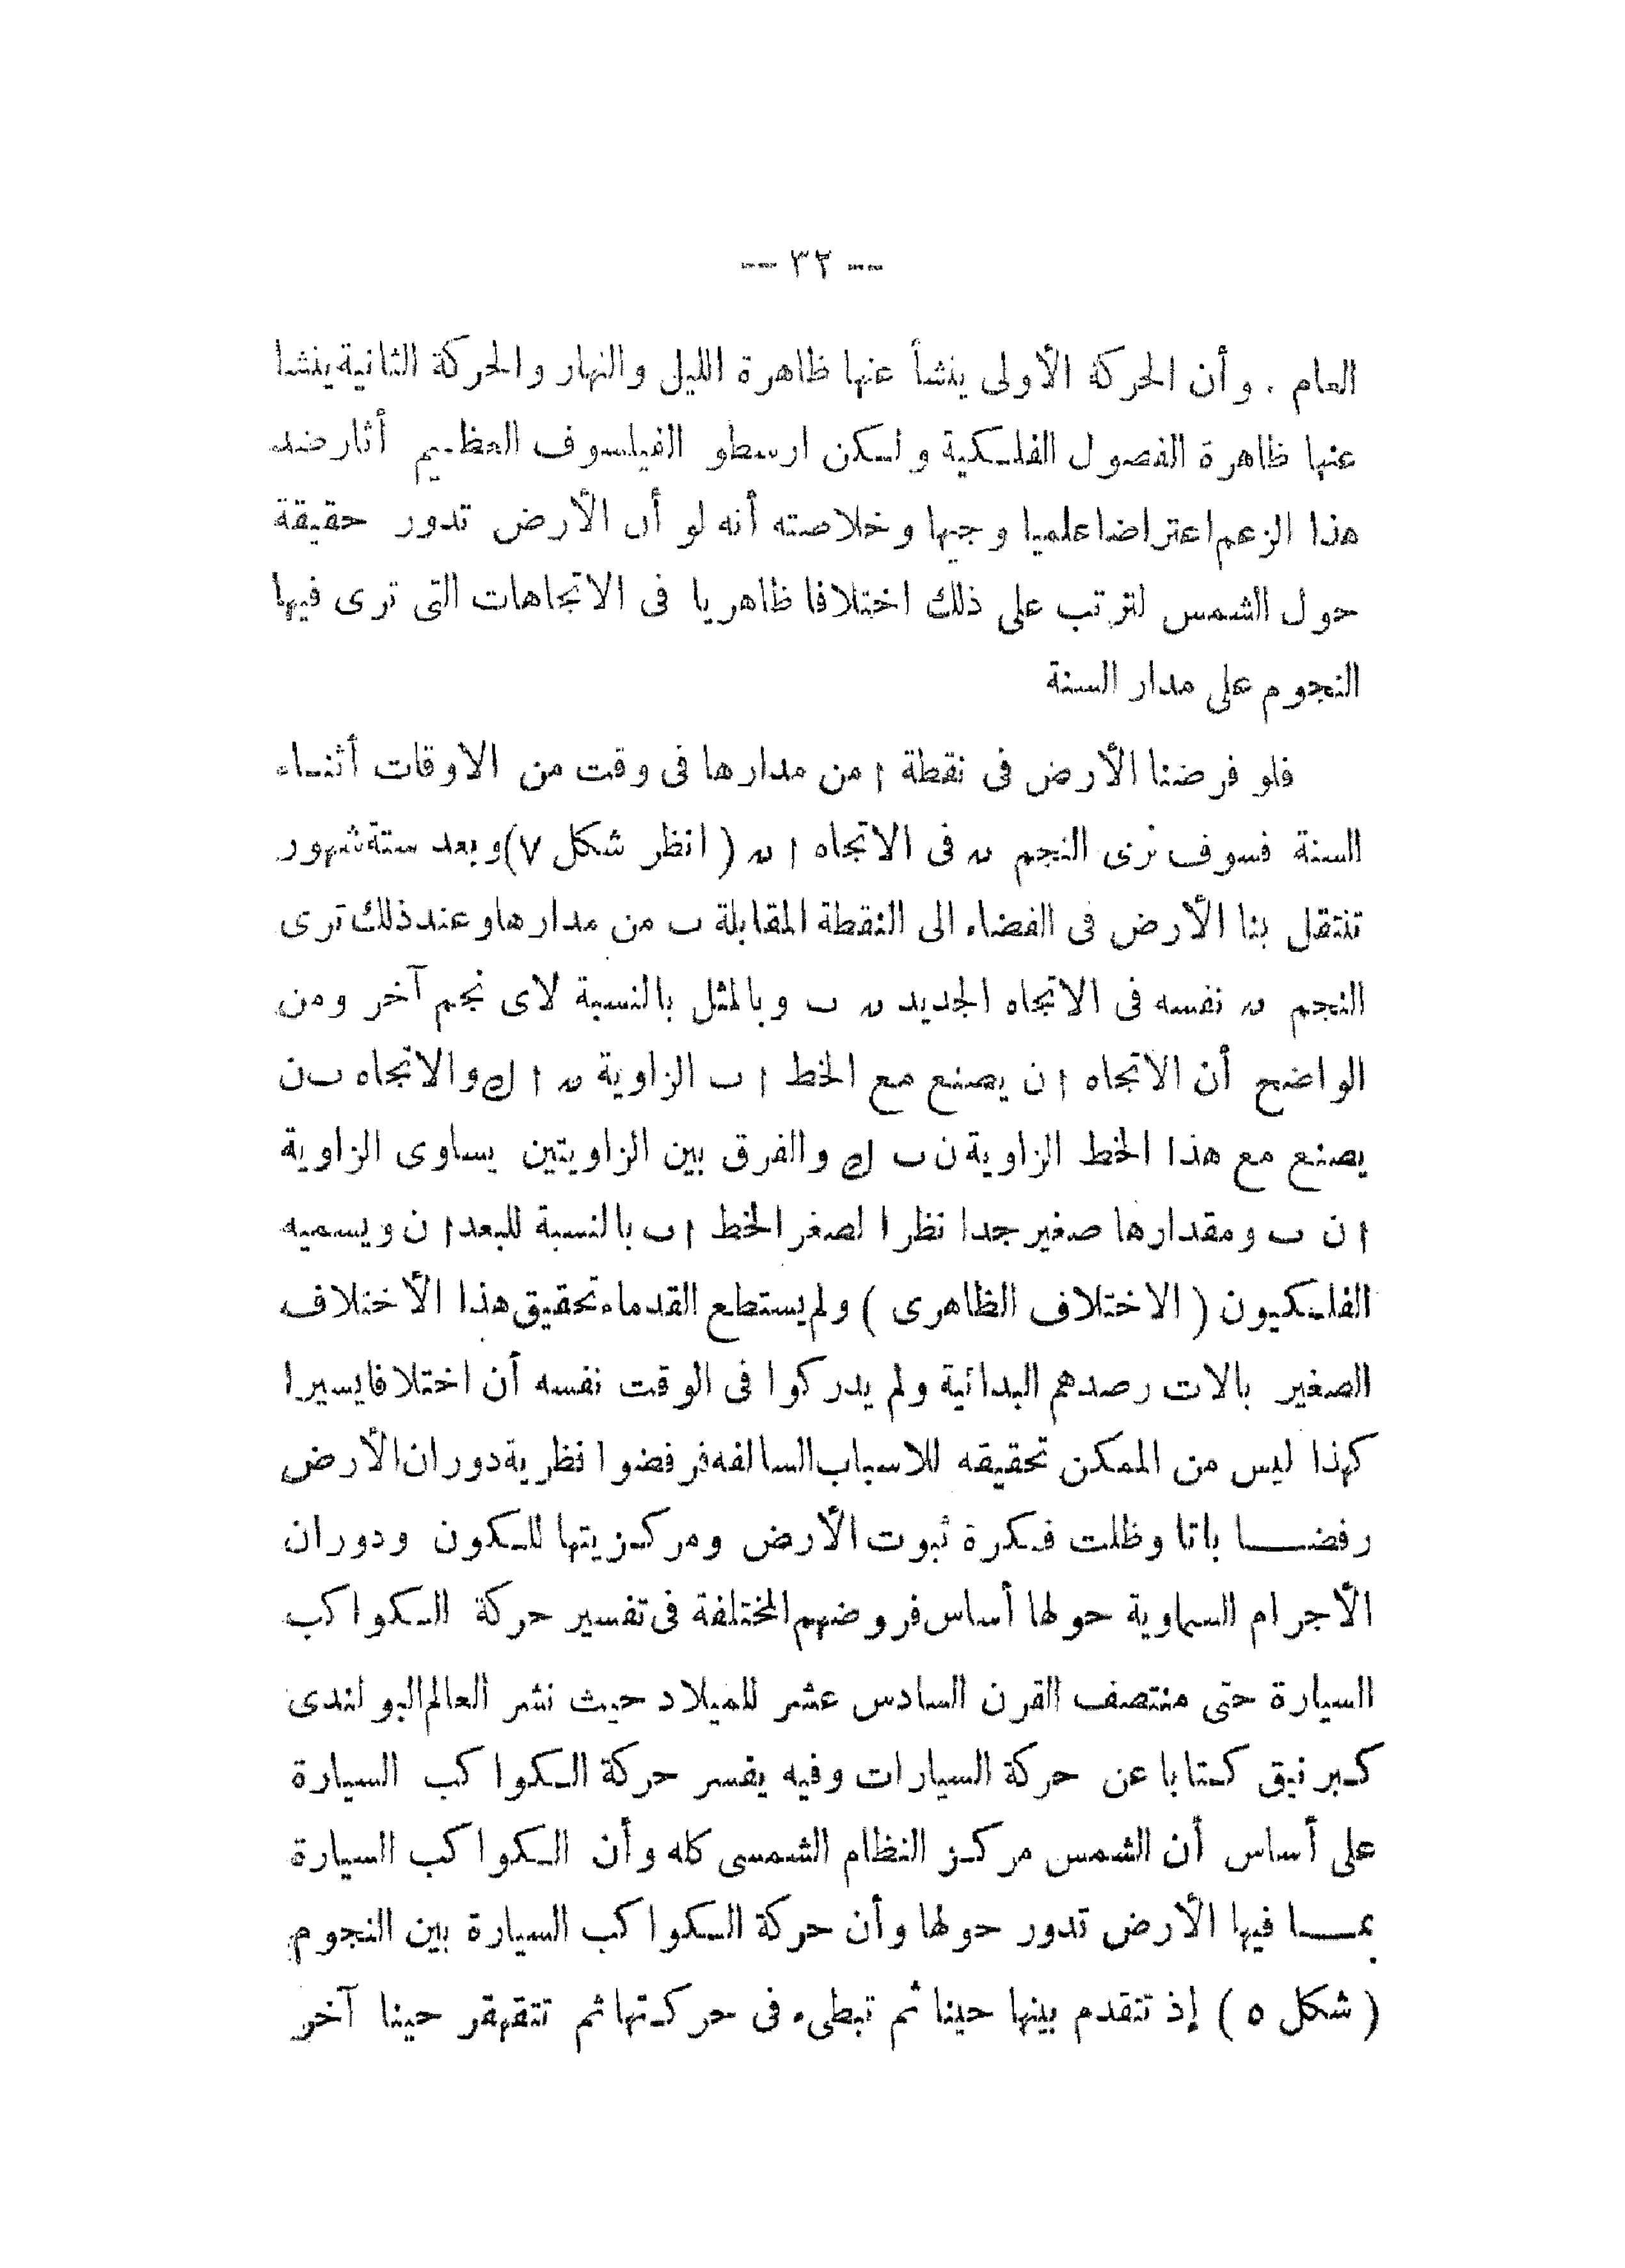 -- ٣٢ --
العام . وأن الحركة الأولى ينشأ عنها ظاهرة الليل والنهار والحركة الثانية ينشا
عنها ظاهرة الفصول الفلكية ولكن ارسطو الفيلسوف العظيم أثار ضد
هذا الزعم اعتراضا علميا وجيها وخلاصته أنه لو أن الأرض تدور حقيقة
حول الشمس لترتب على ذلك اختلافا ظاهريا فى الاتجاهات التى ترى فيها
النجوم على مدار السنة
فلو فرضنا الأرض فى نقطة ا من مدارها فى وقت من الاوقات أثناء
السنة فسوف نرى النجم ن فى الاتجاه ا ن ( انظر شكل ٧ ) وبعد ستة شهور
تنتقل بنا الأرض فى الفضاء الى النقطة المقابلة ب من مدارها وعند ذلك ترى
النجم ن نفسه فى الاتجاه الجديد ن ب وبالمثل بالنسبة لاى نجم آخر ومن
الواضح أن الاتجاه ا ن يصنع مع الخط ا ب الزاوية ن ا ك والاتجاه ب ن
يصنع مع هذا الخط الزاوية ن ب ك والفرق بين الزاويتين يساوى الزاوية
ا ن ب ومقدارها صغير جدا نظرا لصغر الخط ا ب بالنسبة للبعد ا ن ويسميه
الفلكيون ( الاختلاف الظاهرى ) ولم يستطع القدماء تحقيق هذا الأختلاف
الصغير بالات رصدهم البدائية ولم يدركوا فى الوقت نفسه أن اختلافا يسيرا
كهذا ليس من الممكن تحقيقه للاسباب السالفه فرفضوا نظرية دوران الأرض
رفضـــا باتا وظلت فكرة ثبوت الأرض ومركزيتها للكون ودوران
الأجرام السماوية حولها أساس فروضهم المختلفة فى تفسير حركة الكواكب
السيارة حتى منتصف القرن السادس عشر للميلاد حيث نشر العالم البولندى
كبرنيق كتابا عن حركة السيارات وفيه يفسر حركة الكواكب السيارة
على أساس أن الشمس مركز النظام الشمسى كله وأن الكواكب السيارة
بمـــا فيها الأرض تدور حولها وأن حركة الكواكب السيارة بين النجوم
( شكل ٥ ) إذ تتقدم بينها حينا ثم تبطىء فى حركتها ثم تتقهقر حينا آخر